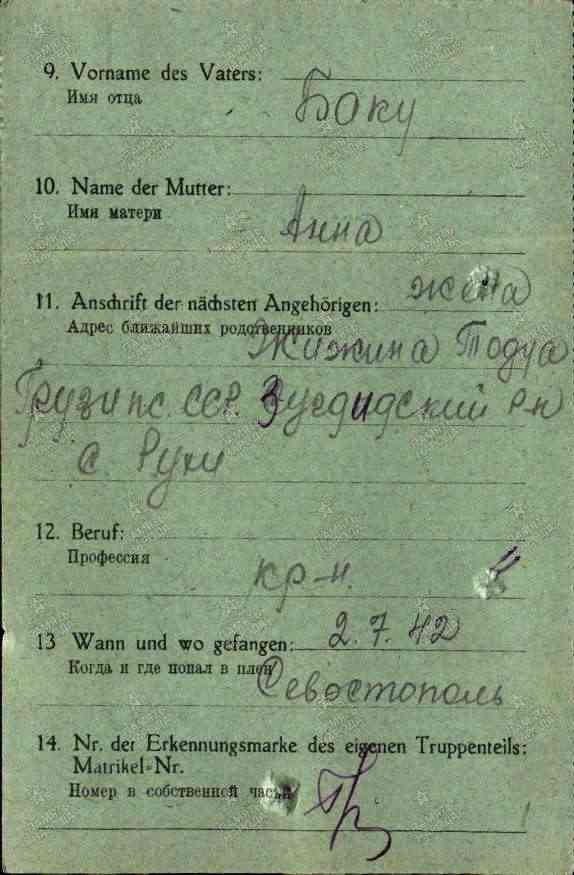 9. Vorname des Vaters:
Имя отца
Боку
10. Name der Mutter:
Имя матери
Анна
11. Anschrift der nächsten Angehörigen: жена
Адрес ближайших родственников
Жижина Тодуа
Грузинс. ССР. Зугдидский р-н
с. Рухи
12. Beruf:
Профессия
кр-н.
13 Wann und wo gefangen: 2.7.42
Когда и где попал в плен
Севостополь
14. Nr. der Erkennungsmarke des eigenen Truppenteils:
Matrikel-Nr.
Номер в собственной части